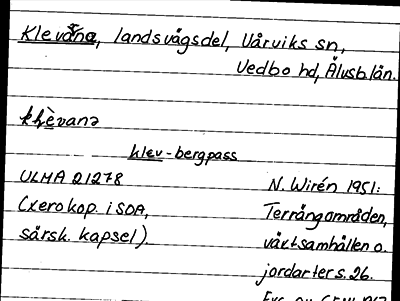 Klevåna, landsvägsdel, Vårviks sn,
Vedbo hd, Älvsb.län.
klèvana
klev-bergpass
ULMA 21278
(xerokop. i SOA,
särsk. kapsel).
N. Wirén 1951:
Terrängområden,
växtsamhällen o.
jordarter s. 26.